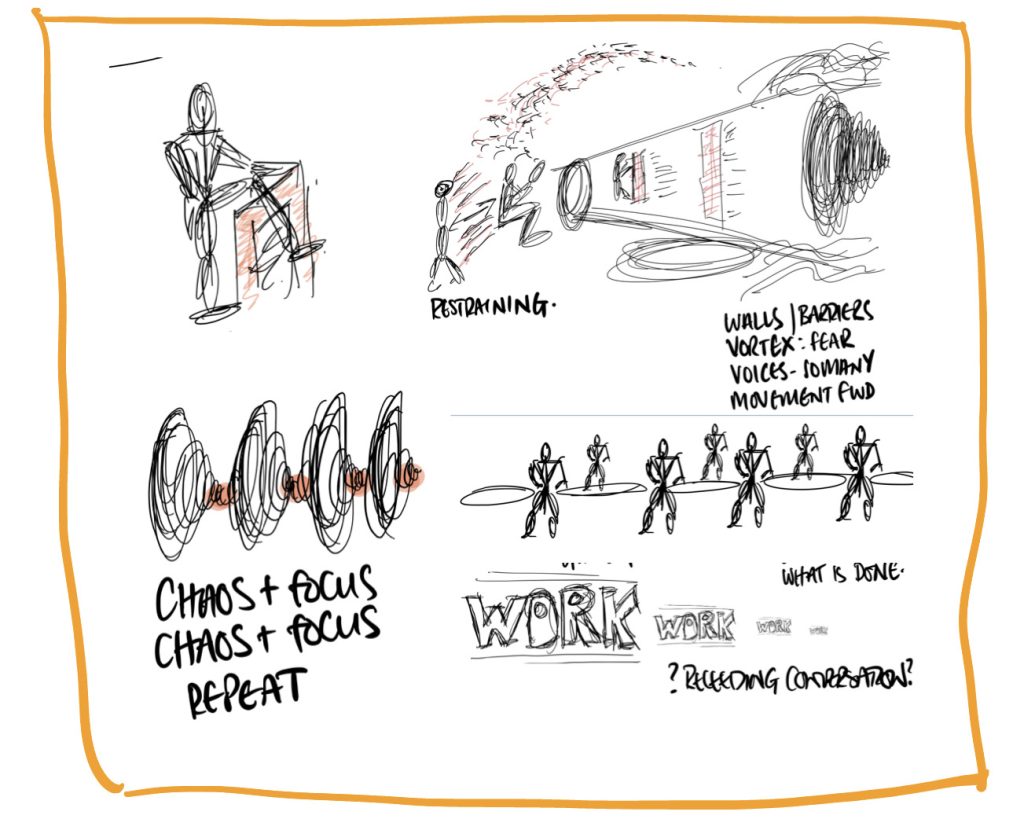 RESTRAINING.
WALLS | BARRIERS
VORTEX = FEAR
VOICES - SO MANY
MOVEMENT FWD
CHAOS + FOCUS
CHAOS + FOCUS
REPEAT
WHAT IS DONE.
WORK WORK WORK WORK
? RECEEDING CONVERSATION?